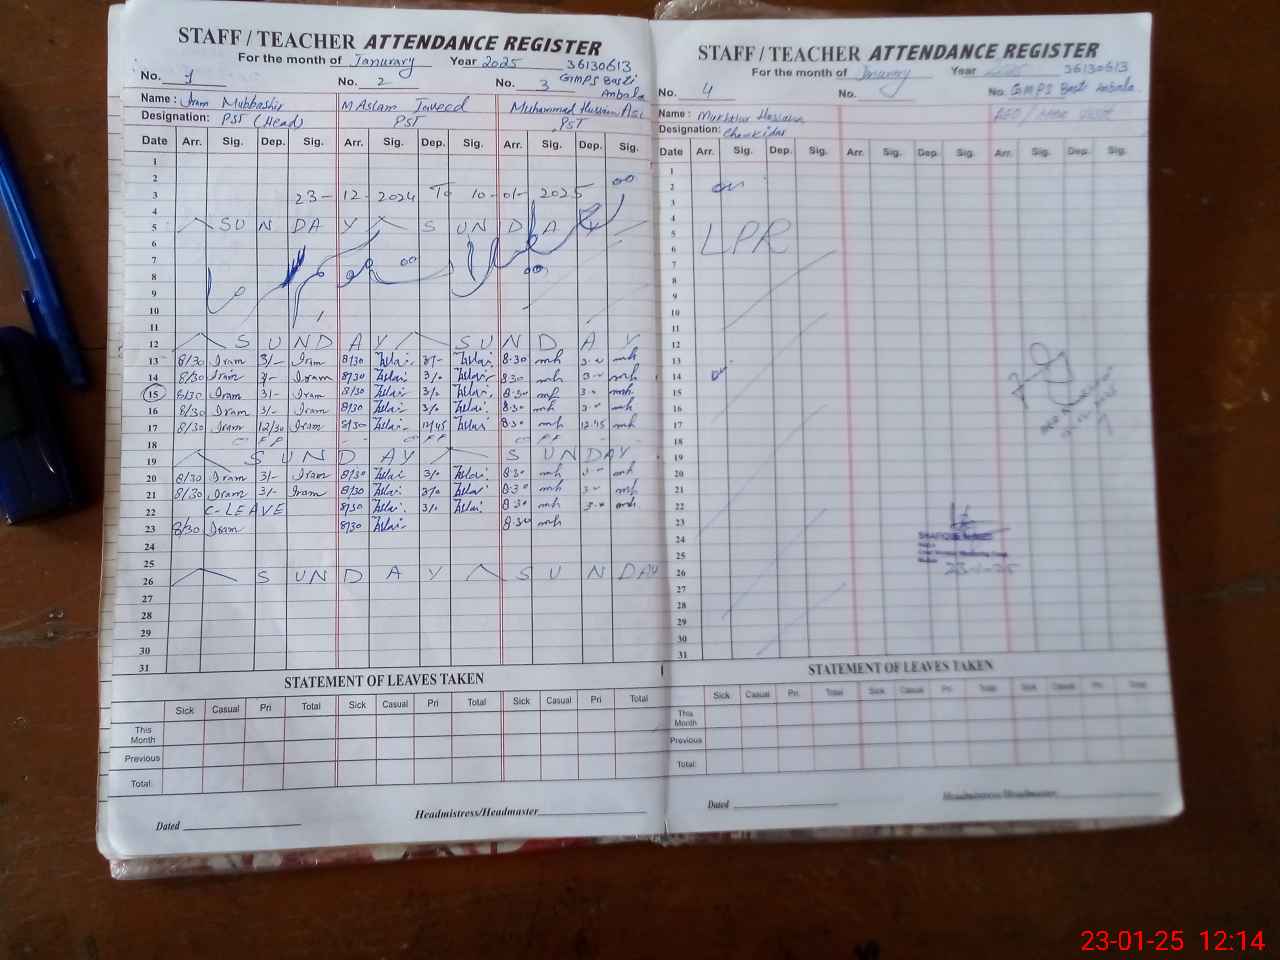 STAFF / TEACHER ATTENDANCE REGISTER
For the month of Janurary Year 2025 36130613
No. 1 No. 2 No. 3 GMPS Basti Ambala
Name : Iram Mubbashir M Aslam Javeed Muhammad Hussain
Designation: PST (Head) PST PST
Date Arr. Sig. Dep. Sig. Arr. Sig. Dep. Sig. Arr. Sig. Dep. Sig.
1
2
3 23-12-2024 To 10-01-2025
4
5 SUNDAY SUNDAY
6
7
8
9
10
11
12 SUNDAY SUNDAY
13 8/30 Iram 3/- Iram 8/30 3/- 8.30 mh mh
14 8/30 Iram 3/- Iram 8/30 3/- 8.30 mh mh
15 8/30 Iram 3/- Iram 8/30 3/- 8.30 mh mh
16 8/30 Iram 3/- Iram 8/30 3/- 8.30 mh mh
17 8/30 Iram 12/30 Iram 8/30 12/45 8.30 mh 12.45 mh
18 OFF OFF OFF
19 SUNDAY SUNDAY
20 8/30 Iram 3/- Iram 8/30 3/- 8.30 mh mh
21 8/30 Iram 3/- Iram 8/30 3/- 8.30 mh mh
22 C-LEAVE 8/30 3/- 8.30 mh mh
23 8/30 Iram 8/30 8.30 mh
24
25
26 SUNDAY SUNDAY
27
28
29
30
31
STATEMENT OF LEAVES TAKEN
Sick Casual Pri Total Sick Casual Pri Total Sick Casual Pri Total
This Month
Previous
Total:
Dated Headmistress/Headmaster
STAFF / TEACHER ATTENDANCE REGISTER
For the month of Janurary Year 2025 36130613
No. 4 No. No. GMPS Basti Ambala
Name : Mukhtar Hussain
Designation: Chowkidar
Date Arr. Sig. Dep. Sig. Arr. Sig. Dep. Sig. Arr. Sig. Dep. Sig.
1
2
3
4
5
6 LPR
7
8
9
10
11
12
13
14
15
16
17
18
19
20
21
22
23
24
25
26 23-1-25
27
28
29
30
31
STATEMENT OF LEAVES TAKEN
Sick Casual Pri Total Sick Casual Pri Total Sick Casual Pri Total
This Month
Previous
Total:
Dated Headmistress/Headmaster
23-01-25 12:14